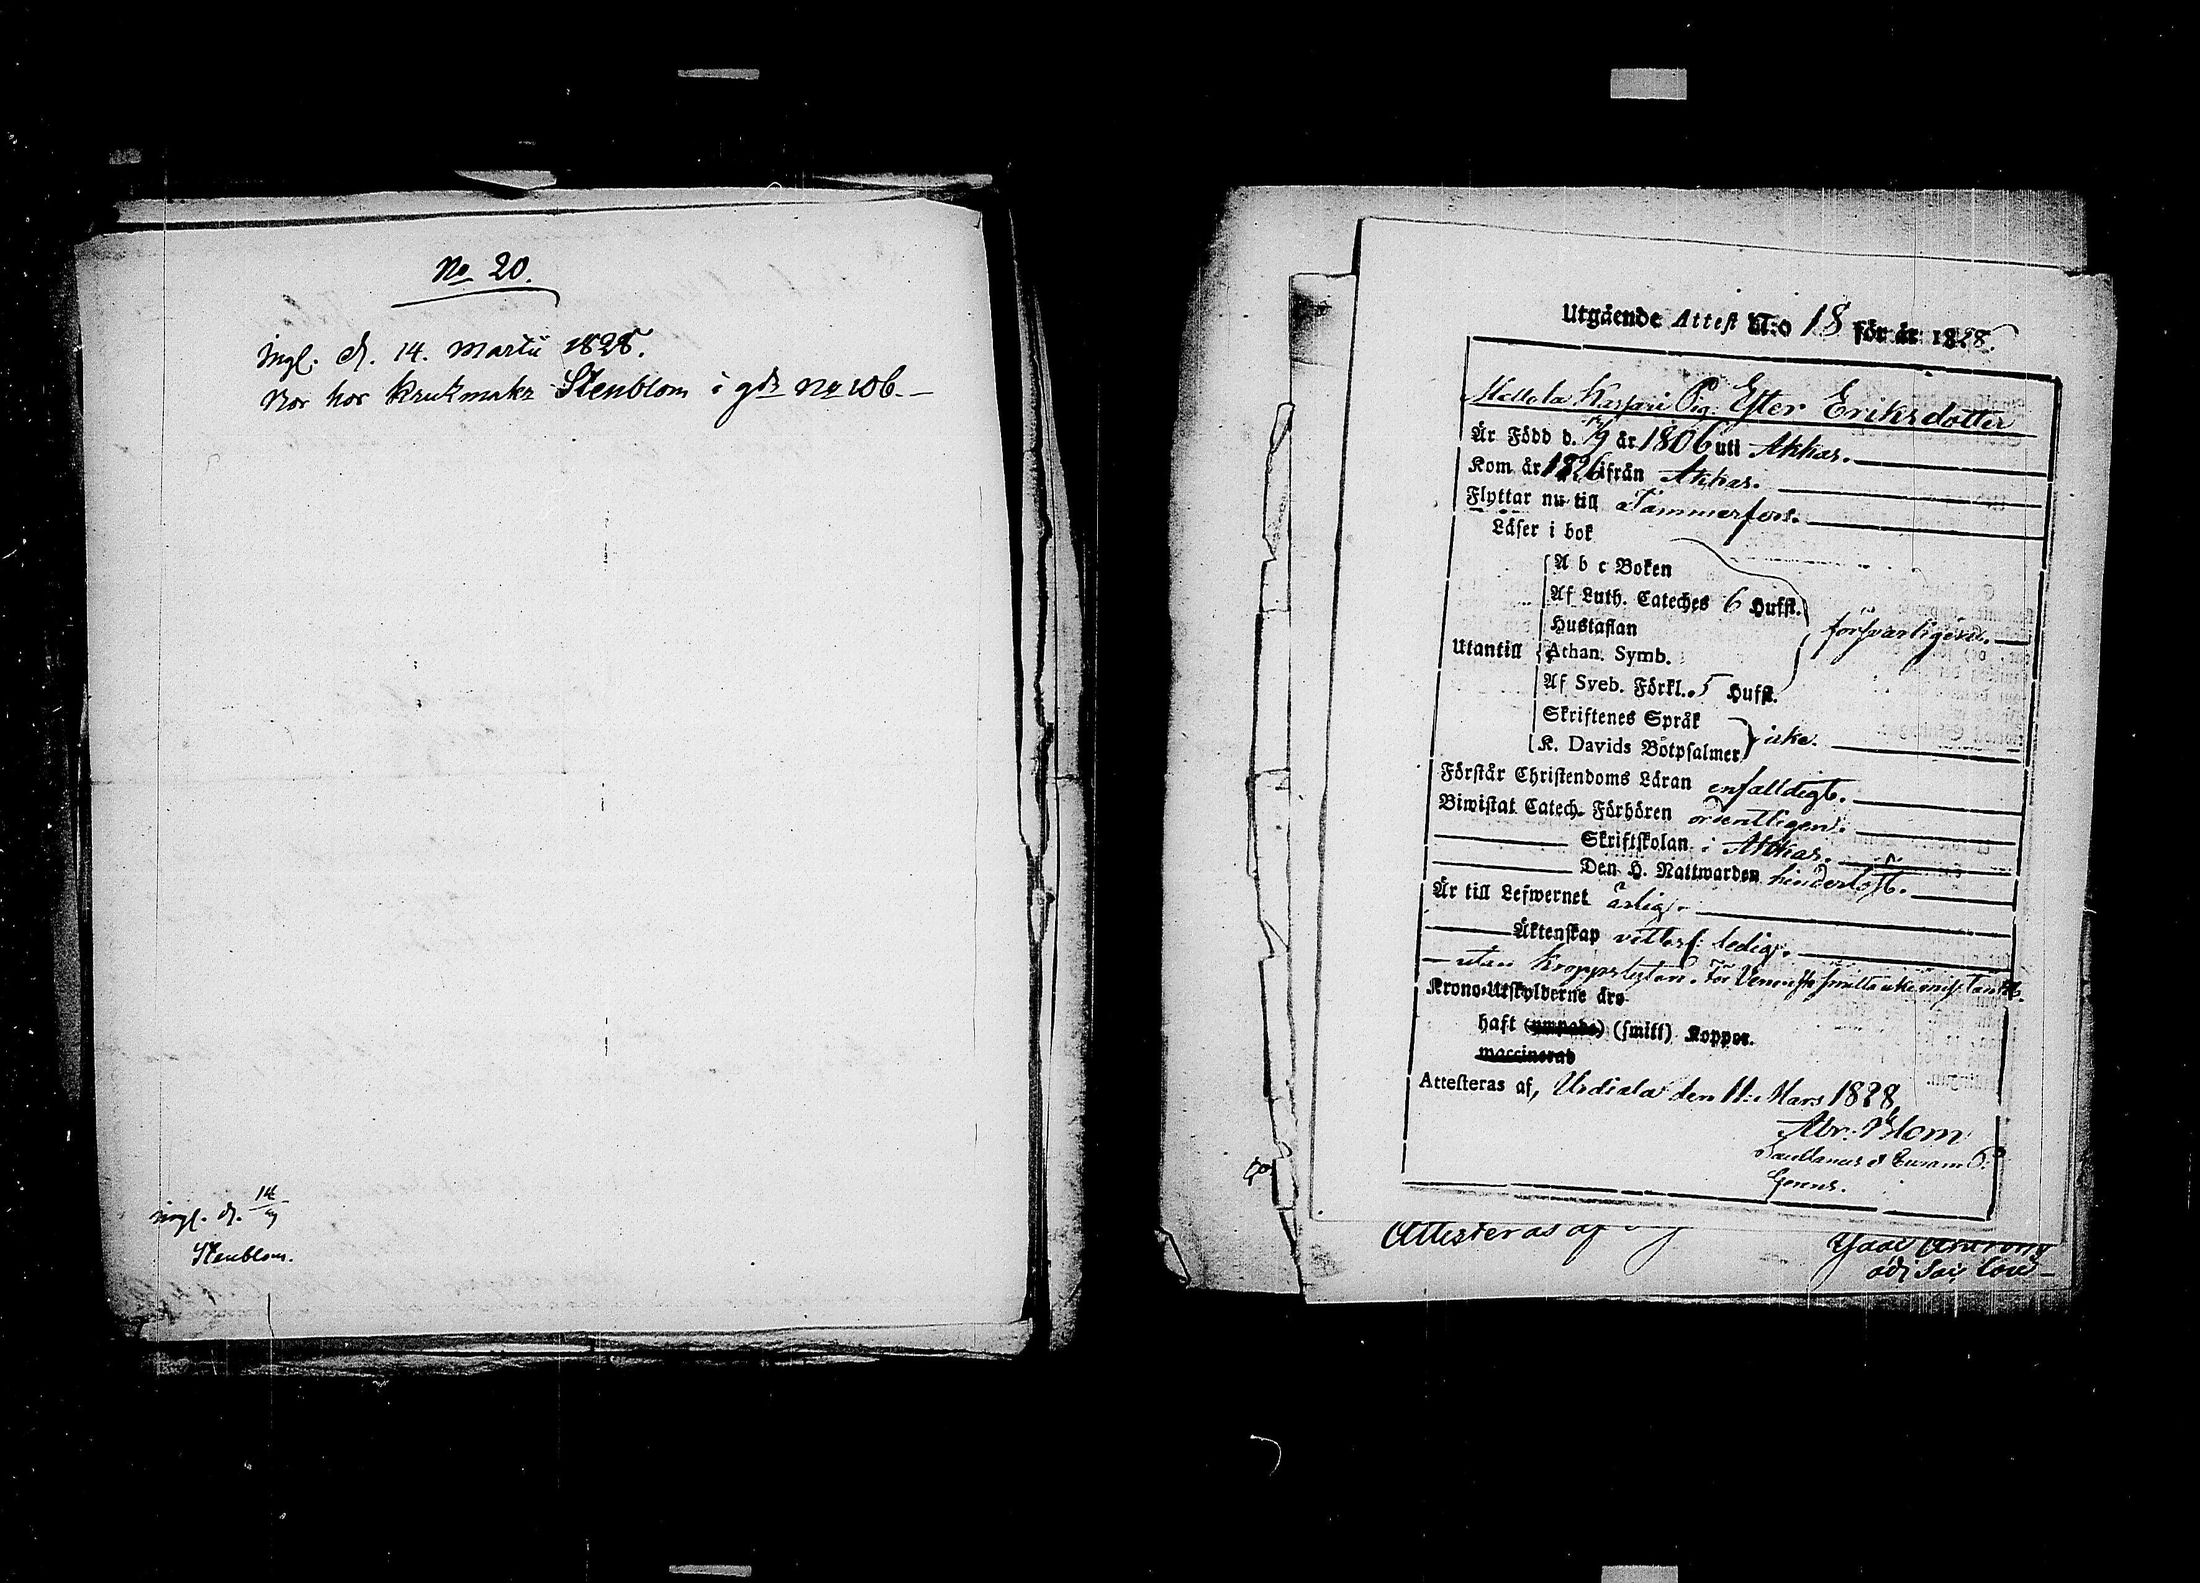 No 20.
ingl. d. 14. Martii 1828.
Bor hos Krukmakr Stenblom i gdn No 106.
ingl. d. 14/3
Stenblom.
Utgående Attest N:o 18 för år 1828.
Mellola Kaspri Pig. Ester Eriksdotter
Är Född d. 19 år 1806 uti Akkas.
Kom år 1826 ifrån Akkas.
Flyttar nu till Tammerfors.
Läser i bok
A b c Boken
Af Luth. Cateches 6 Hufst.
Hustaflan
försvarligen.
Utantill Athan. Symb.
Af Sveb. Förkl. 5 Hufst.
Skriftenes Språk
K. Davids Botpsalmer icke.
Förstår Christendoms Läran enfalldigt.
Biwistat Catech. Förhören ordentligen.
Skriftskolan i Akkas.
Den H. Nattwarden hinderlöst.
Är till Lefwernet ärlig.
Äktenskap vitterl. ledig.
utan Kroppslyten. För Venerisk smitta icke misstänkt.
Krono-Utskylderne äro
haft (ympade) (smitt) Koppor.
waccinerad
Attesteras af, Urdiala den 11: Mars 1828
Abr. Blom
Sacellanus
Attesteras af